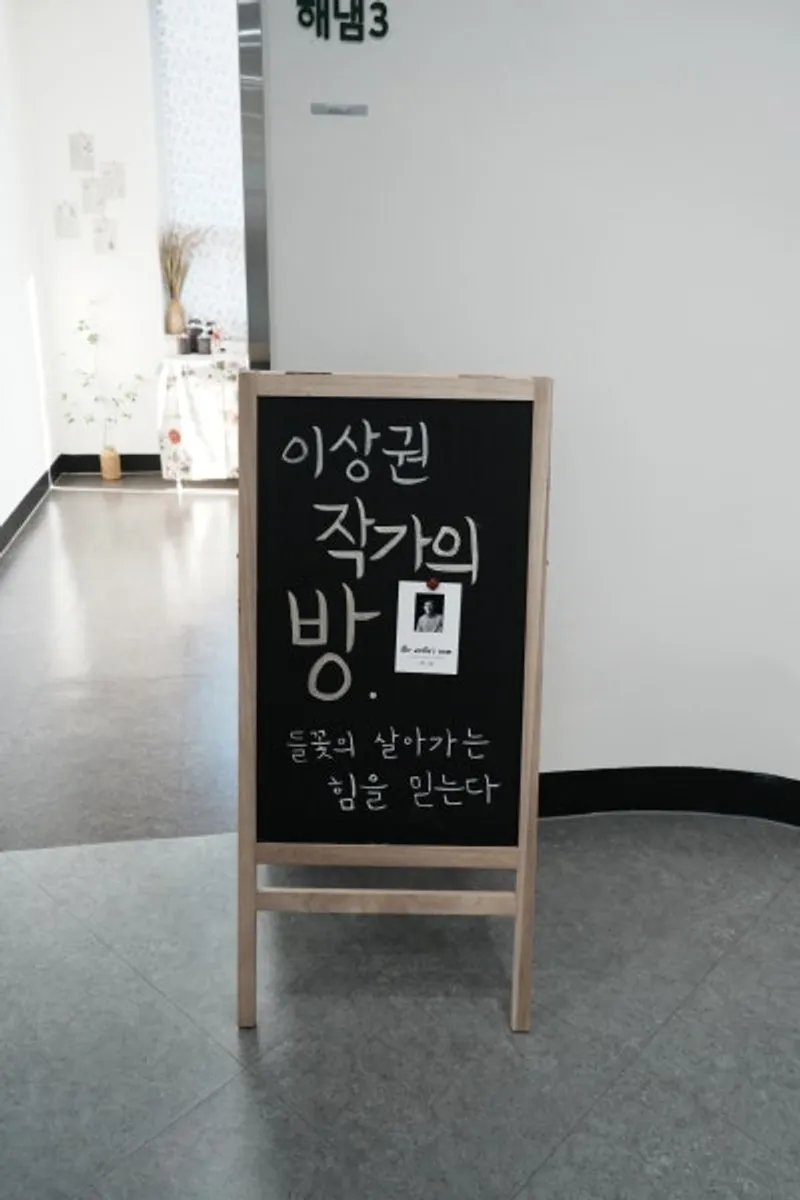 해냄3
이상권
작가의
방.
들꽃의 살아가는
힘을 믿는다